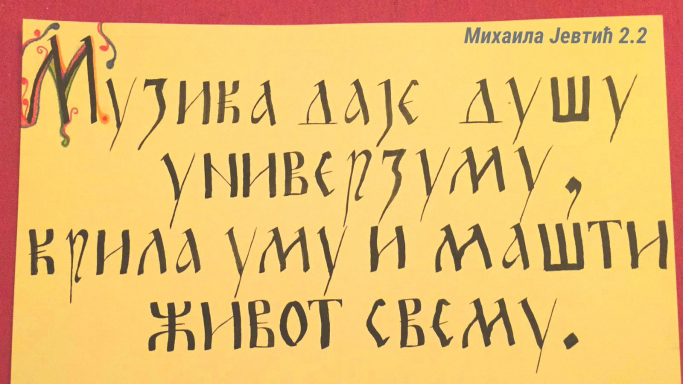 Михаила Јевтић 2.2
Музика даје душу
универзуму,
крила уму и машти
живот свему.